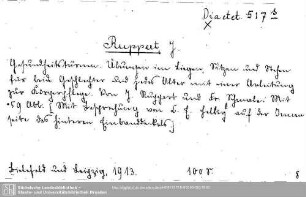 Diaetet. 517 b
Ruppert J.
Gesundheitsturnen. Übungen im Liegen, Sitzen und Stehen
für beide Geschlechter und jedes Alter mit einer Anleitung
zur Körperpflege. Von J. Ruppert und Dr Schmale. Mit
59 Abb. [Mit Besprechung von D. F. Felke auf der Innen
seite des hinteren Einbanddeckels]
Bielefeld und Leipzig, 1913. 100 S. 8
Sächsische Landesbibliothek –
Staats- und Universitätsbibliothek Dresden